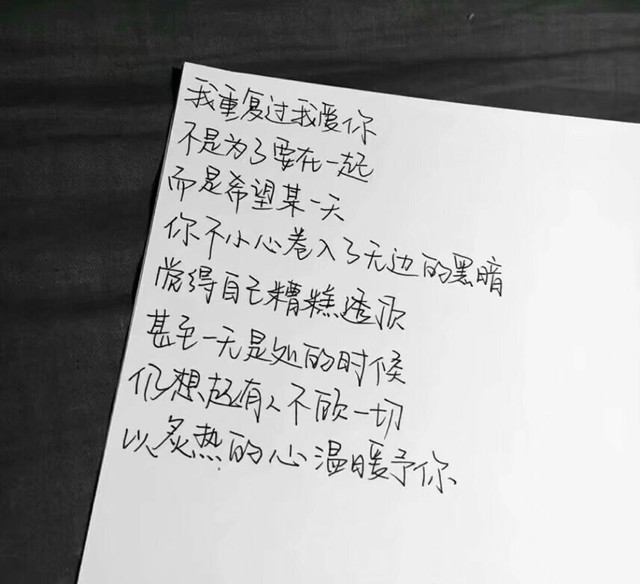 我重复过我爱你
不是为了要在一起
而是希望某一天
你不小心卷入了无边的黑暗
觉得自己糟糕透顶
甚至一无是处的时候
仍想起有人不顾一切
以炙热的心温暖予你